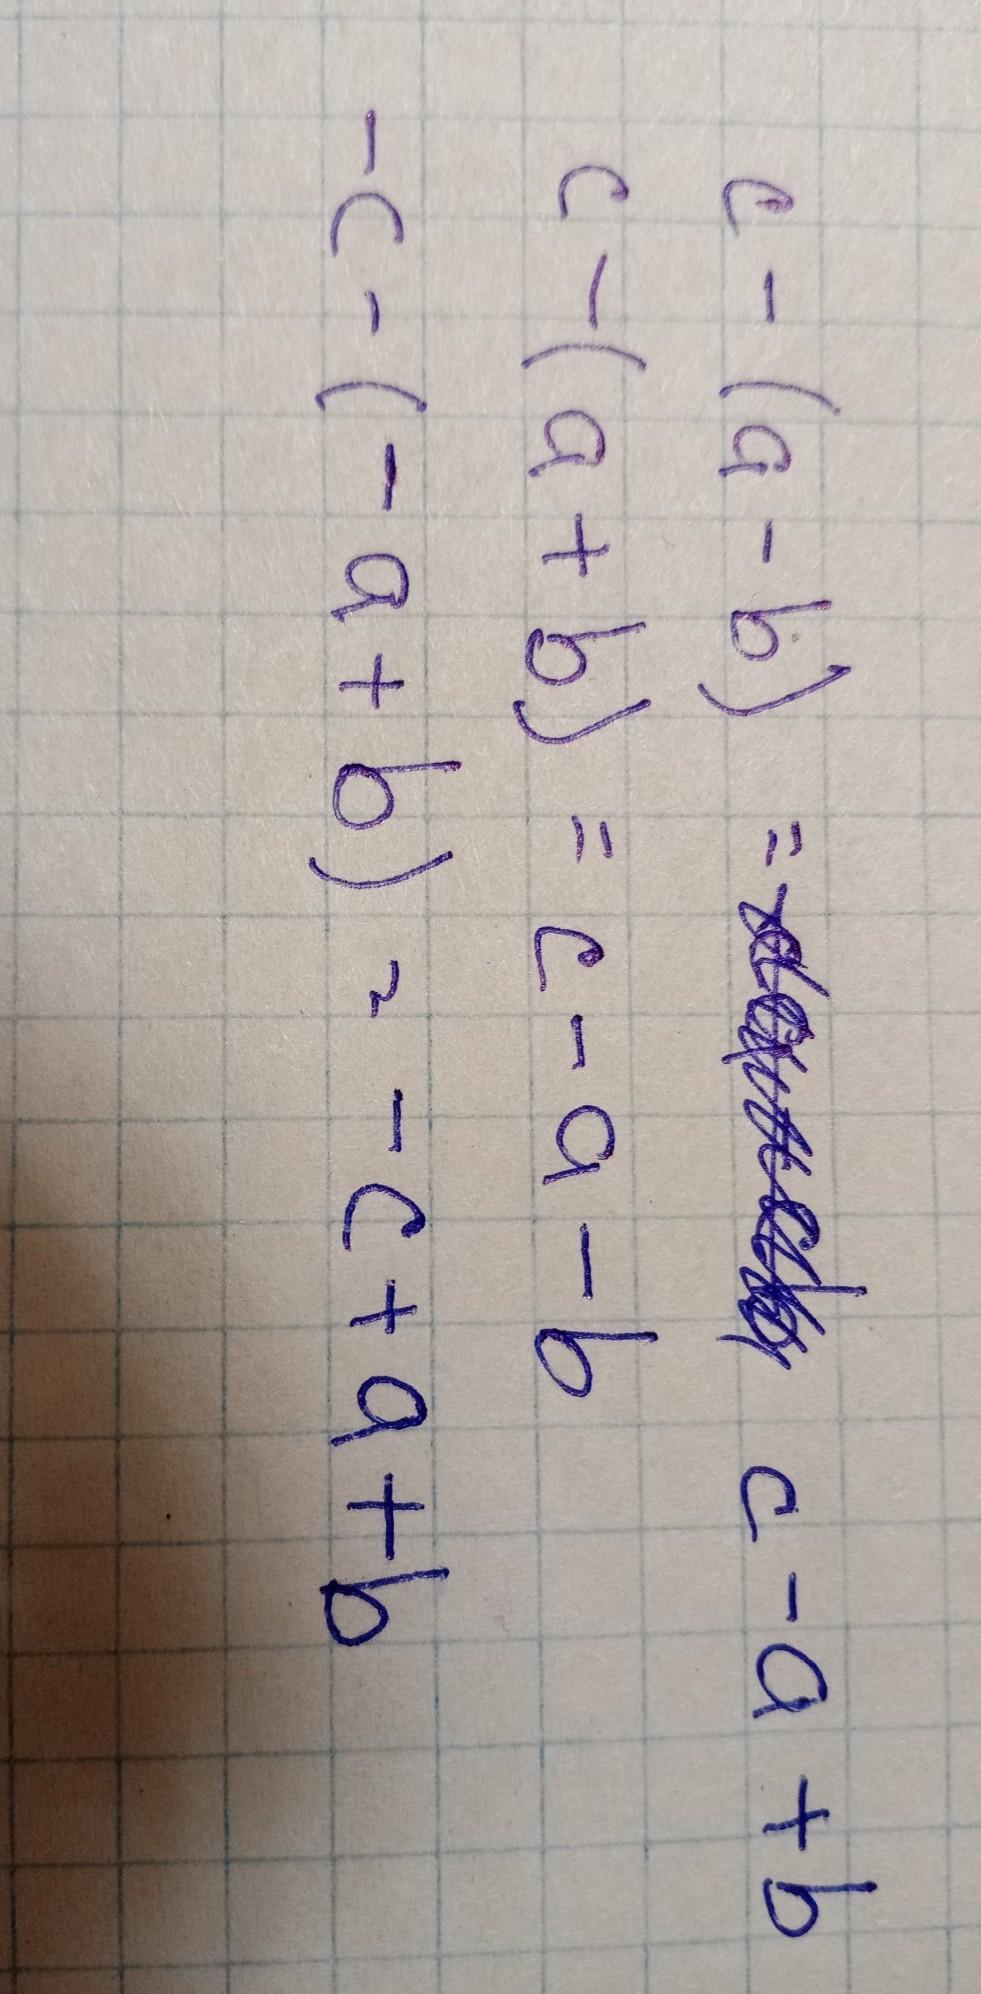 c - (a - b) = c - a + b
c - (a + b) = c - a - b
- c - (- a + b) = - c + a + b